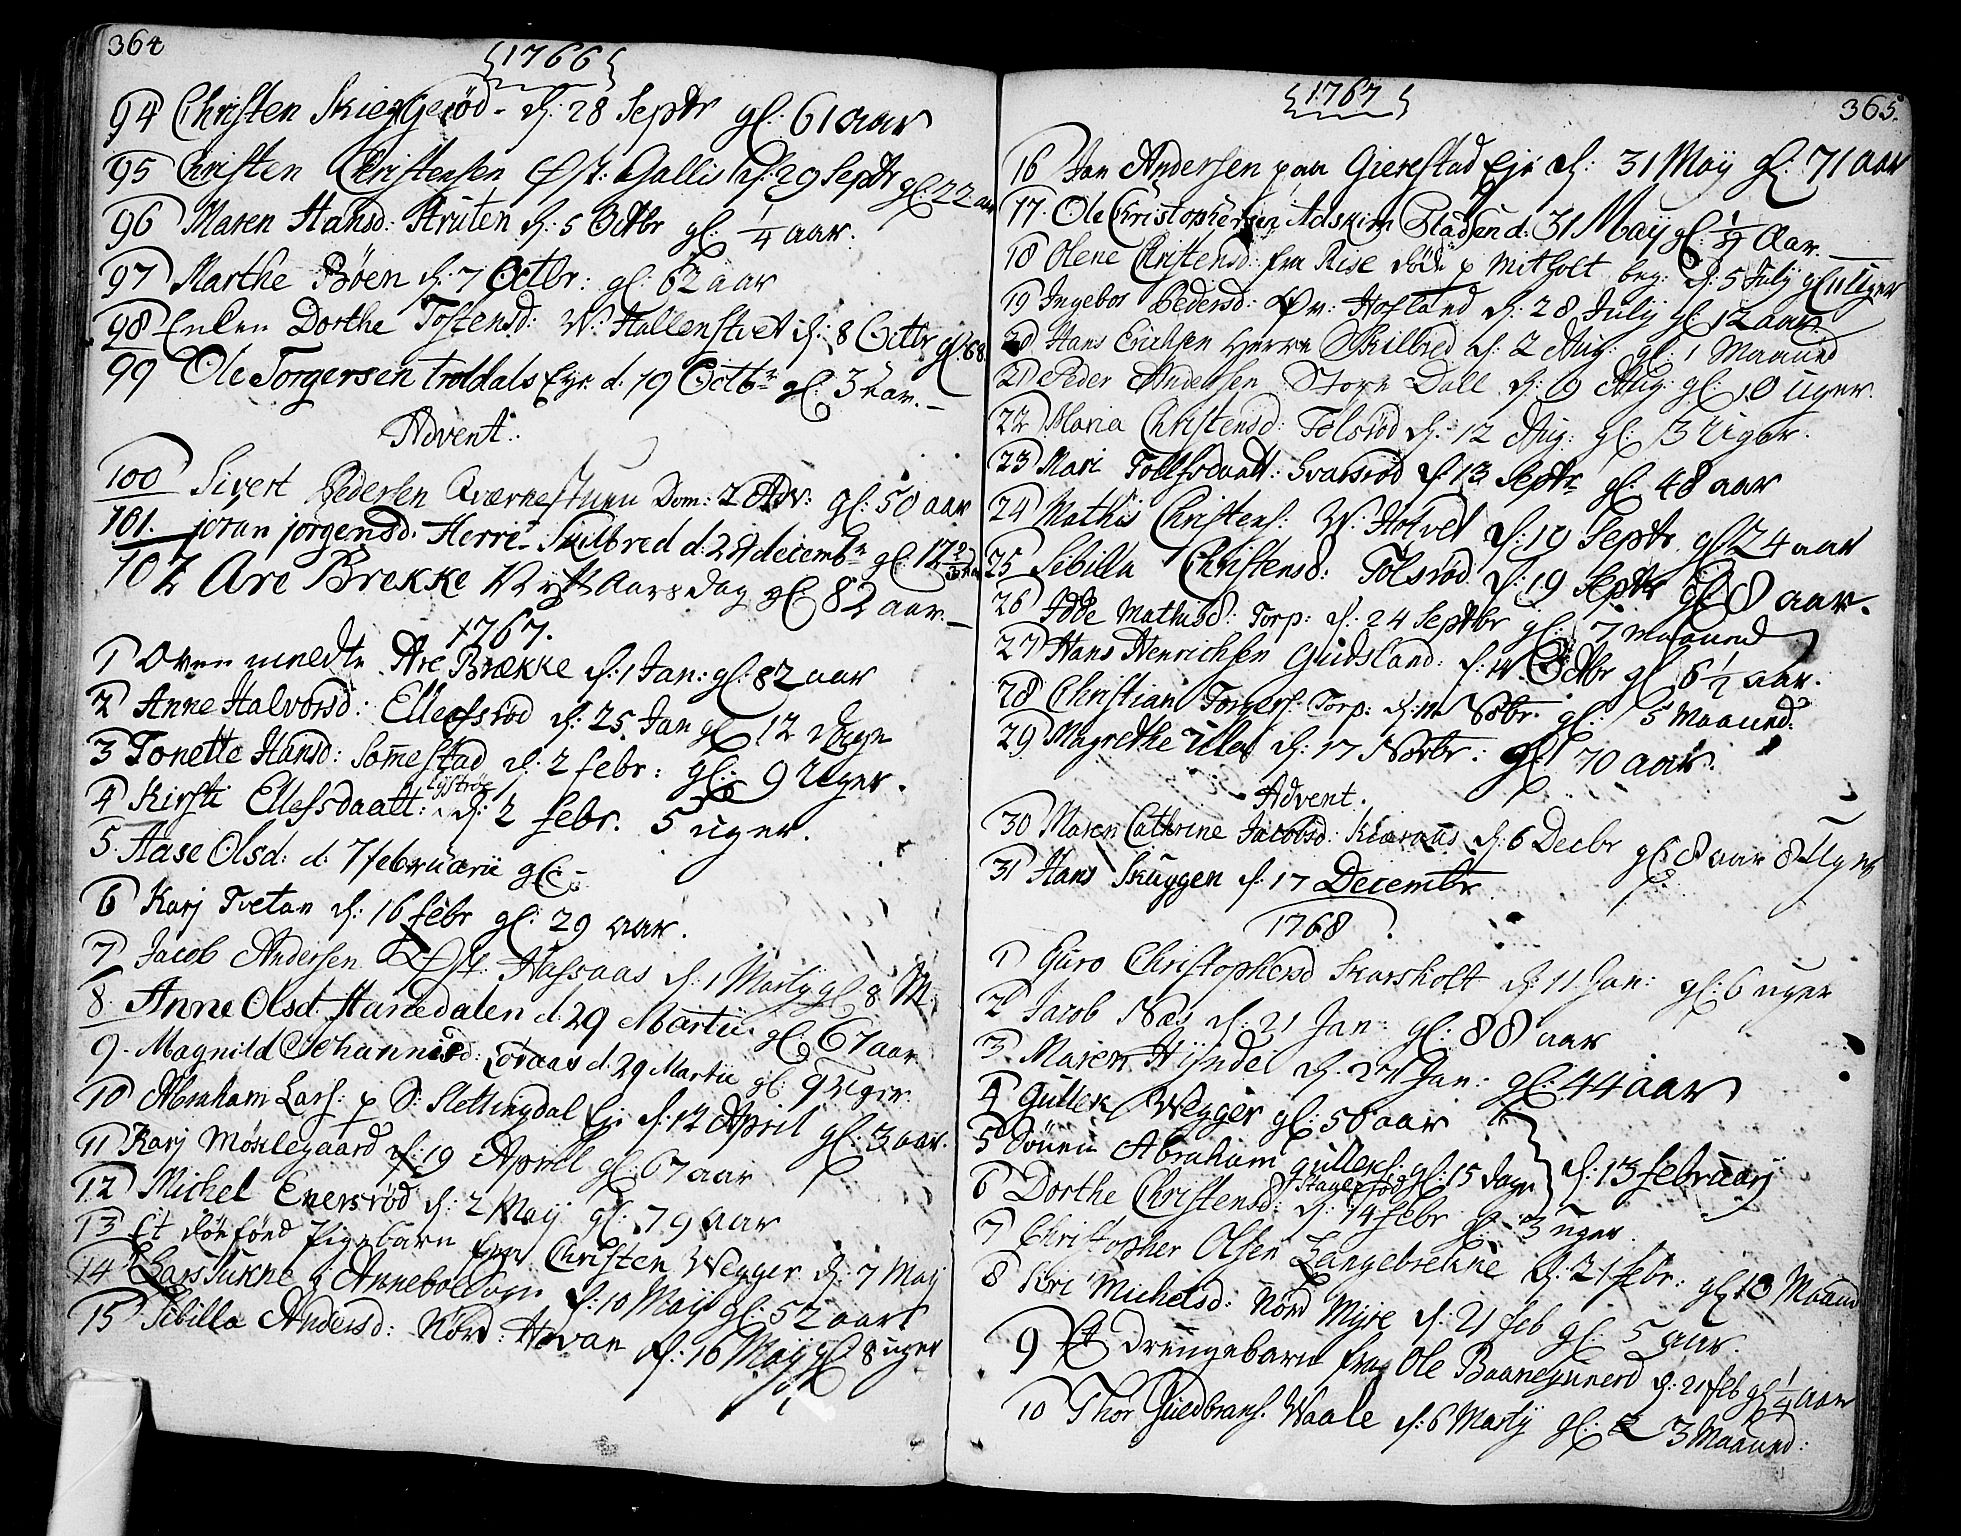 364
1766
94 Christen Skieggerød d: 28 Septr gl: 61 aar
95 Christen Christensen Øst: Gallis d: 29 Septr gl: 22 aar
96 Maren Hansd: Struten d: 5 Octbr gl: 1/4 aar.
97 Marthe Bøen d: 7 Octbr: gl: 62 aar
98 Enken Dorthe Tostensd: W: Hallenstvet d: 8 Octbr gl: 68
99 Ole Torgersen troldals Eye d. 19 Octbr gl: 3 aar.
Advent:
100 Sivert Pedersen Qværnestuen Dom: 2 Adv: gl: 50 aar
101. joran jorgensd. Herre Skilbred d: 29 decembr gl: 12
102 Are Brekke Nytt Aarsdag gl: 82 aar.
1767.
1 Oven meldte Are Brække d: 1 Jan: gl: 82 aar
2 Anne Halvorsd: Ellefsrød d: 25 Jan gl 12 dage
3 Tonette Hansd: Somestad d. 2 febr: gl: 9 Uger.
4 Kirsti Ellefsdaatt: d: 2 febr. 5 uger.
5. Aase Olsd: d: 7 februarii gl: -
6 Karj Tvetan d: 16 febr gl: 29 aar.
7 Jacob Andersen Øst: Hafsaas d: 1 Martij gl 8 M:
8. Anne Olsd: Hanedalen d: 29 Martii gl: 67 aar
9. Magnild Johannisd: Toraas d: 29 Martii gl: 9 Uger
10 Abraham Lars: p S: Slettingdal Eje d: 12 April gl: 3 aar.
11 Karj Møhlegaard d: 19 April gl: 67 aar
12 Michel Enersrød d: 2 Maij gl: 79 aar
13 Et dødfød Pigebarn fra Christen Wegger d: 7 Maij
14 Lars Sukne d: 10 Maij gl: 52 aar
15 Sibilla Andersd: Nørd: Hovan d: 16 Maij gl 8 uger
365.
1767
16 Jan Andersen paa Gierestad Eje d: 31 Maij gl: 71 aar
17. Ole Christophersen Askim Pladsen d. 31 Maij gl: 1/4 Aar
18 Olene Christensd: fra Rise døde p Mitholt beg: d: 5 Julij gl 11 Uger
19 Ingebor Pedersd: Øv: Hofland d: 28 Julij gl: 12 aar
20 Hans Erichsen Herre Skilbred d: 2 Aug: gl: 1 Maaned
21 Peder Andersen Store Dall d: 9 Aug: gl: 10 uger.
22 Maria Christensd: Tolsrød d: 12 Aug: gl: 3 Uger.
23 Mari Tollefsdaatt: Svarsrød d: 13 Septr gl: 48 aar
24 Mathis Christens: W: Holvet d: 19 Septr gl 24 aar
25 Sibilla Christensd: Tolsrød d: 19 Septr gl 8 aar.
26 Idde Mathisd: Torp: d: 24 Septbr gl: 7 maaned
27 Hans Henrichsen Gudsland: d: Octbr gl 6 1/2 aar.
28 Christian Torgers: Torp: d: 11 Nobr. gl: 5 Maaned:
29 Magrethe Ula d: 17 Novbr: gl: 70 aar.
Advent.
30 Maren Cathrine Jacobsd: Kiæraas d: 6 Decbr gl: 8 aar 8 Uger
31 Hans Skuggen d: 17 Decembr
1768
1 Guro Christophersd Skarsholt d: 11 Jan: gl: 6 uger
2 Jacob Næs d: 21 Jan: gl: 88 aar
3 Maren Hynde d: 27 Jan: gl: 44 aar
4 Gullek Wegger gl: 50 aar
5 Sønen Abraham Gulleks: gl: 15 dage d: 13 februarij
6 Dorthe Christensd: d: 14 febr gl: 3 uger
7 Christopher Olsen Langebrekke d: 21 febr: gl 13 Maaned
8 Kari Michelsd: Nørd Myre d: 21 feb gl: 5 aar.
9 Et Drengebarn fra Ole Baanegunerd d: 21 feb gl 1/4 aar
10 Thor Guldbrans. Waale d: 6 Martij gl: 2 3 Maaned: